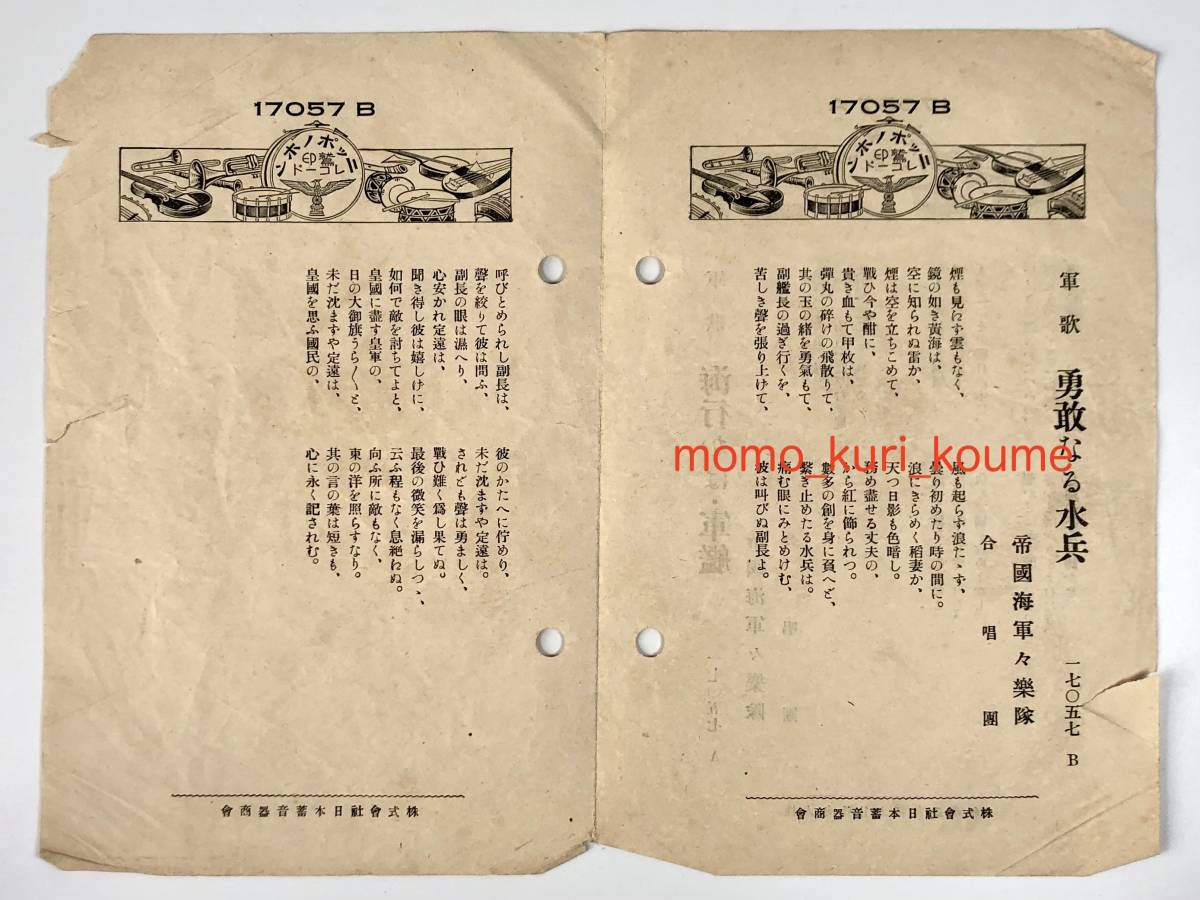 17057 B
ニッポノホン
鷲印
レコード
軍歌 勇敢なる水兵 一七〇五七 B
帝國海軍々樂隊
合唱團
煙も見えず雲もなく、 風も起らず浪たゝず、
鏡の如き黃海は、 曇り初めたり時の間に。
空に知られぬ雷か、 浪にきらめく稻妻か、
煙は空を立ちこめて、 天つ日影も色暗し。
戰ひ今や酣に、 務め盡せる丈夫の、
貴き血もて甲枚は、 から紅に飾られつ。
彈丸の碎けの飛散りて、 數多の創を身に負へど、
其の玉の緒を勇氣もて、 繫ぎ止めたる水兵は。
副艦長の過ぎ行くを、 痛む眼にみとめけむ、
苦しき聲を張り上げて、 彼は叫びぬ副長よ。
株式會社日本蓄音器商會
17057 B
ニッポノホン
鷲印
レコード
呼びとめられし副長は、 彼のかたへに佇めり、
聲を絞りて彼は問ふ、 未だ沈まずや定遠は。
副長の眼は濕へり、 されども聲は勇ましく、
心安かれ定遠は、 戰ひ難く爲し果てぬ。
聞き得し彼は嬉しけに、 最後の微笑を漏らしつゝ、
如何で敵を討ちてよと、 云ふ程もなく息絶えぬ。
皇國に盡す皇軍の、 向ふ所に敵もなく、
日の大御旗うら〱と、 東の洋を照らすなり。
未だ沈まずや定遠は、 其の言の葉は短きも、
皇國を思ふ國民の、 心に永く記されむ。
株式會社日本蓄音器商會
momo_kuri_koume